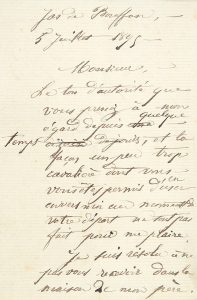 Jas de Bouffan,
5 Juillet 1895
Monsieur,
Le ton d'autorité que
vous prenez à mon
égard depuis quelque
temps, et la
façon un peu trop
cavalière dont vous
venez de permis d'user
envers moi au moment de
votre départ ne sont pas
fait pour me plaire.
Je suis résolu à ne
pas vous recevoir dans la
maison de mon père.